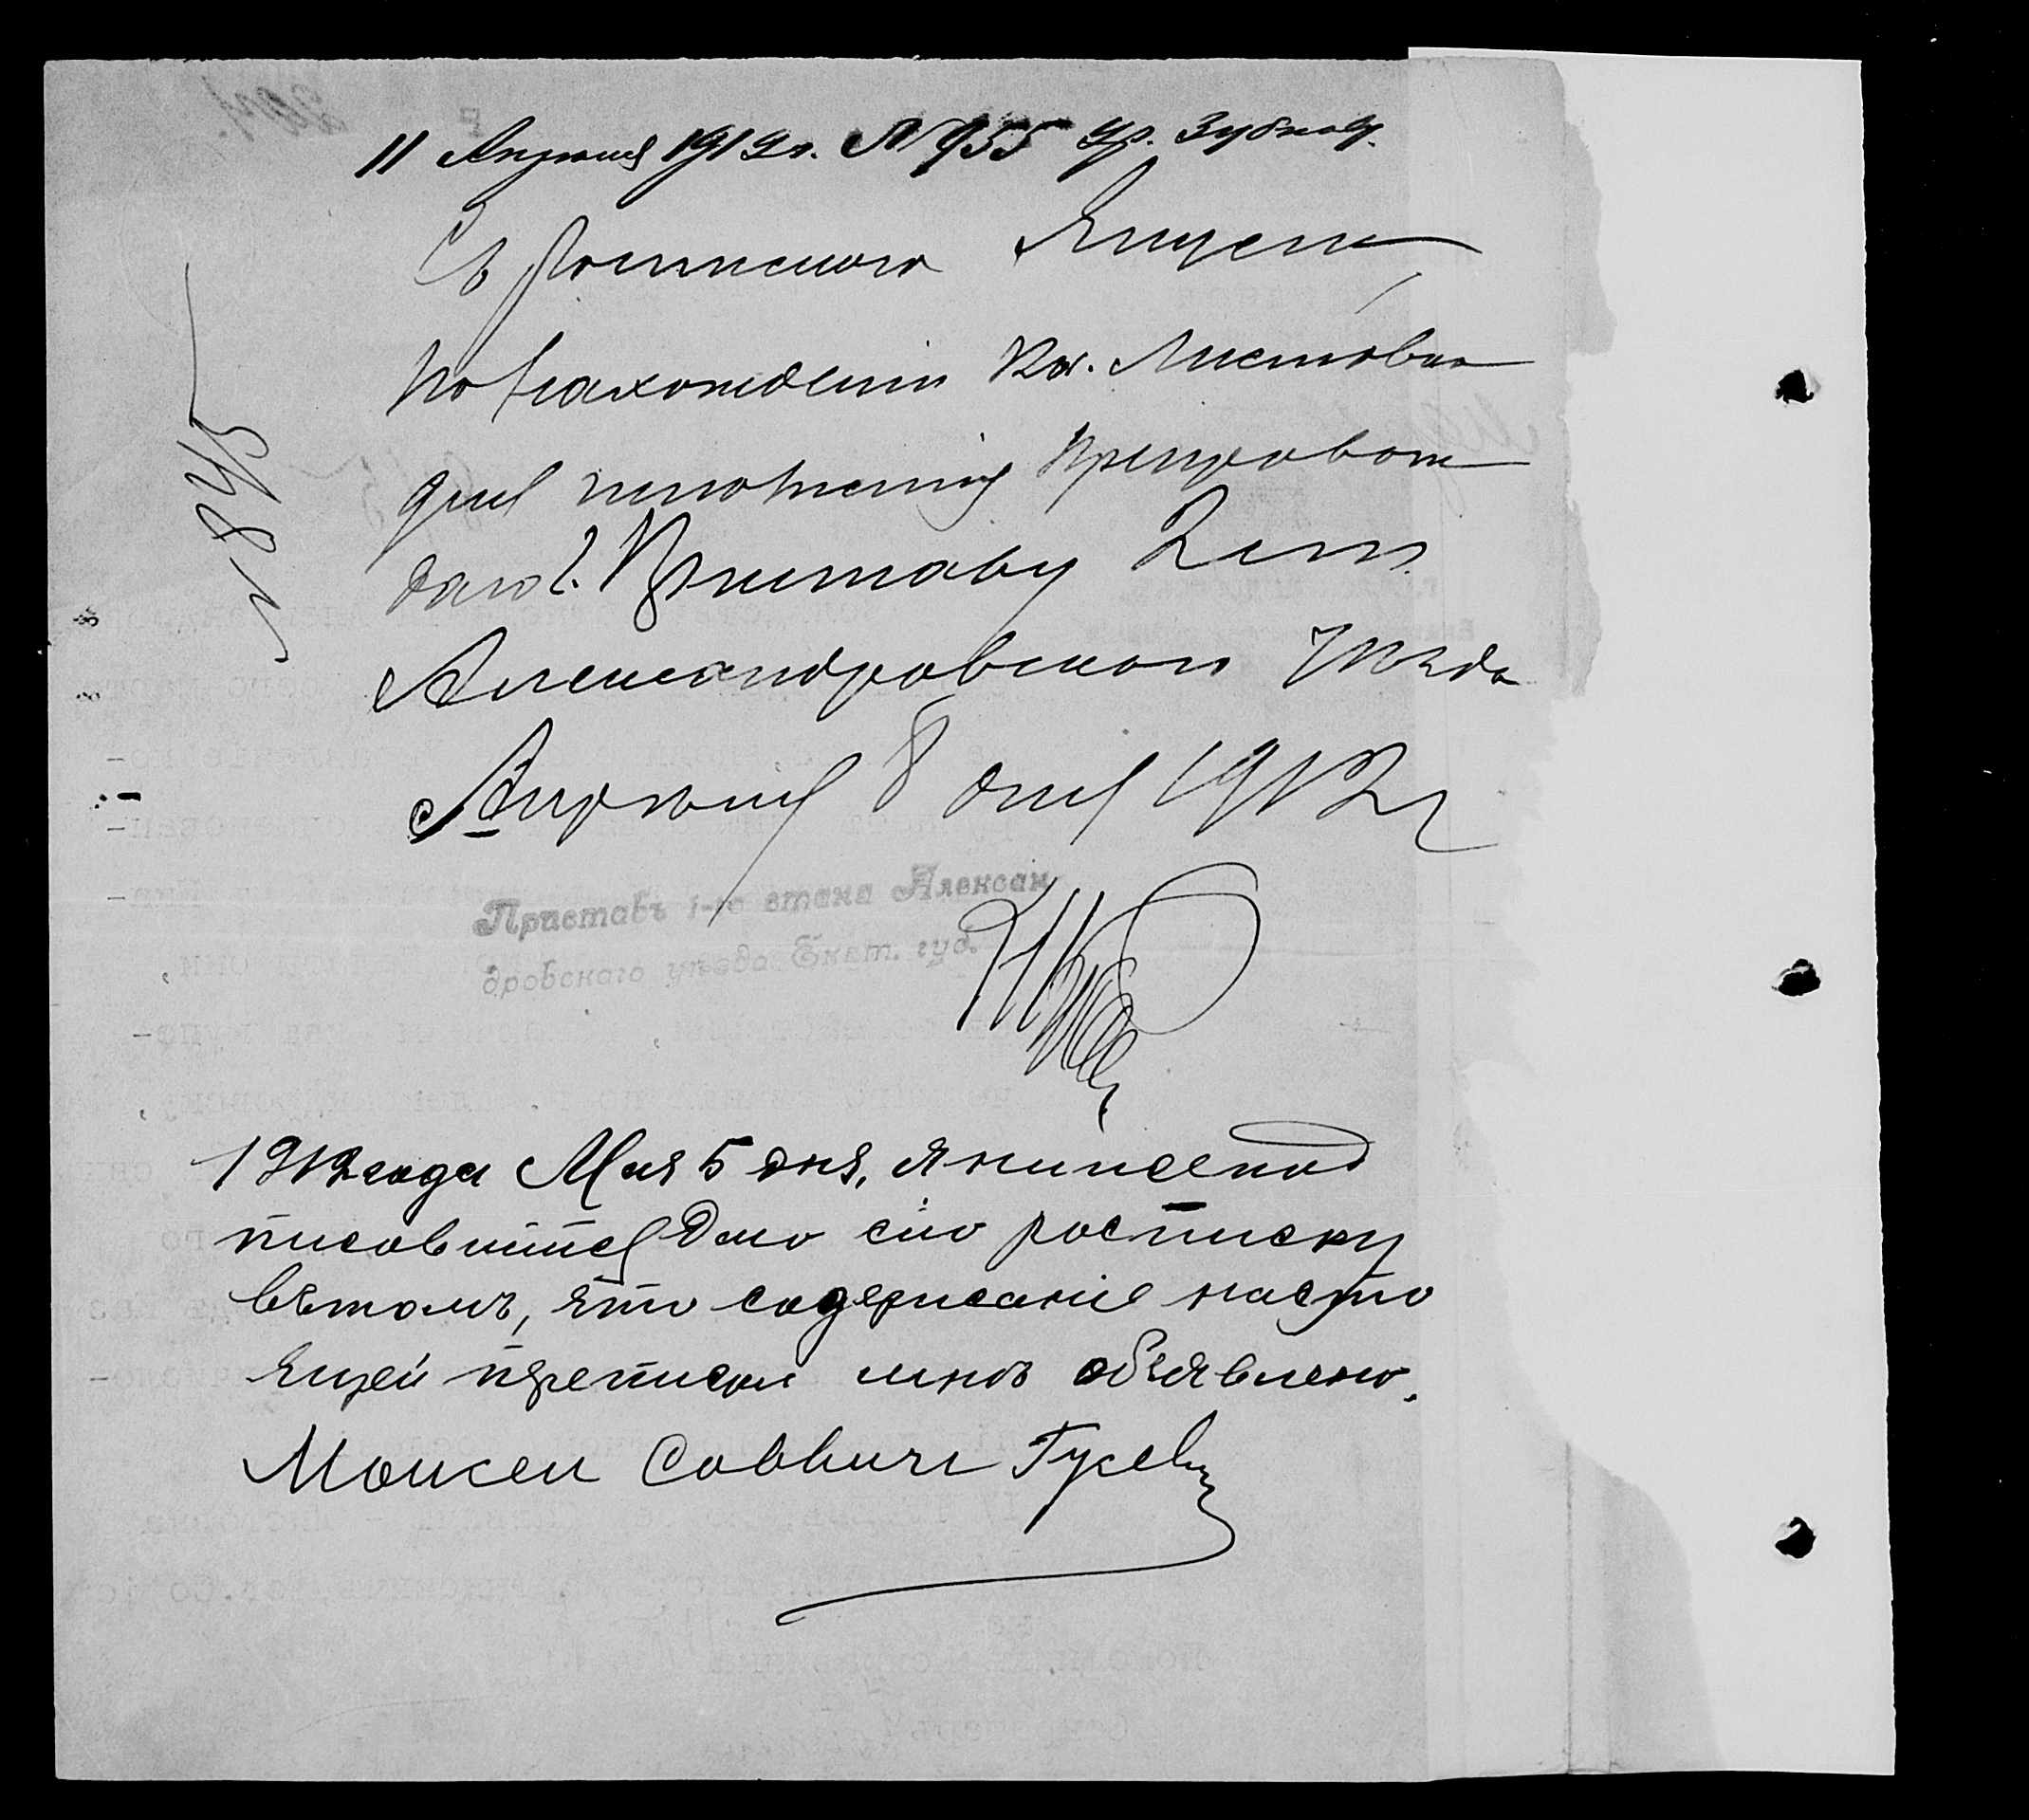 11 Апрѣля 1912 г. № 955 Ур. Зубкову.
Съ
по нахожденію кол. Листовка
для исполненія препровож
даю г. Приставу 2 ст.
Александровского Уѣзда
Апрѣля 8 дня 1912 г
Приставъ 1-го стана Алексан-
дровскаго уѣзда Екат. губ.
1912 года Мая 5 дня, я нижепод
писавшійся даю сію росписку
вътомъ, что содержаніе насто
ящей переписки мнѣ объявлено.
Моисей Саввичъ Гусевъ